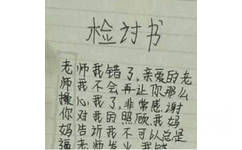 检讨书
老师我错了,亲爱的老
师我不会再让你那么
操心我了,非常感谢
你对我的照顾,我妈
妈告诉我不可以总是